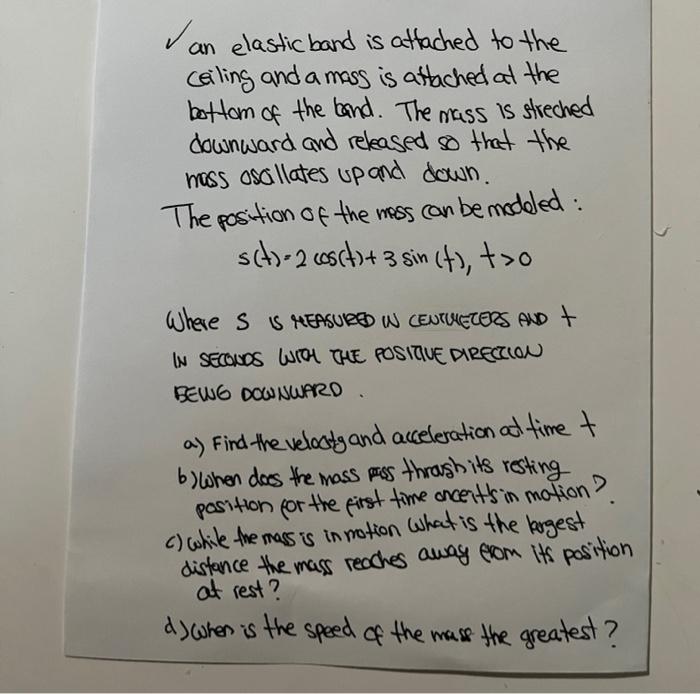 ✓ an elastic band is attached to the
ceiling and a mass is attached at the
bottom of the band. The mass is streched
downward and released so that the
mass osallates up and down.
The position of the mass can be modoled :
s(t) = 2 cos(t) + 3 sin (t), t > 0
Where S IS MEASURED IN CENTIMETERS AND t
IN SECONDS WITH THE POSITIVE DIRECTION
BEING DOWNWARD .
a) Find the velocity and acceleration at time t
b) When does the mass pass through its resting
position for the first time once it's in motion?
c) while the mass is in motion what is the largest
distance the mass reaches away from its position
at rest?
d) when is the speed of the mass the greatest?